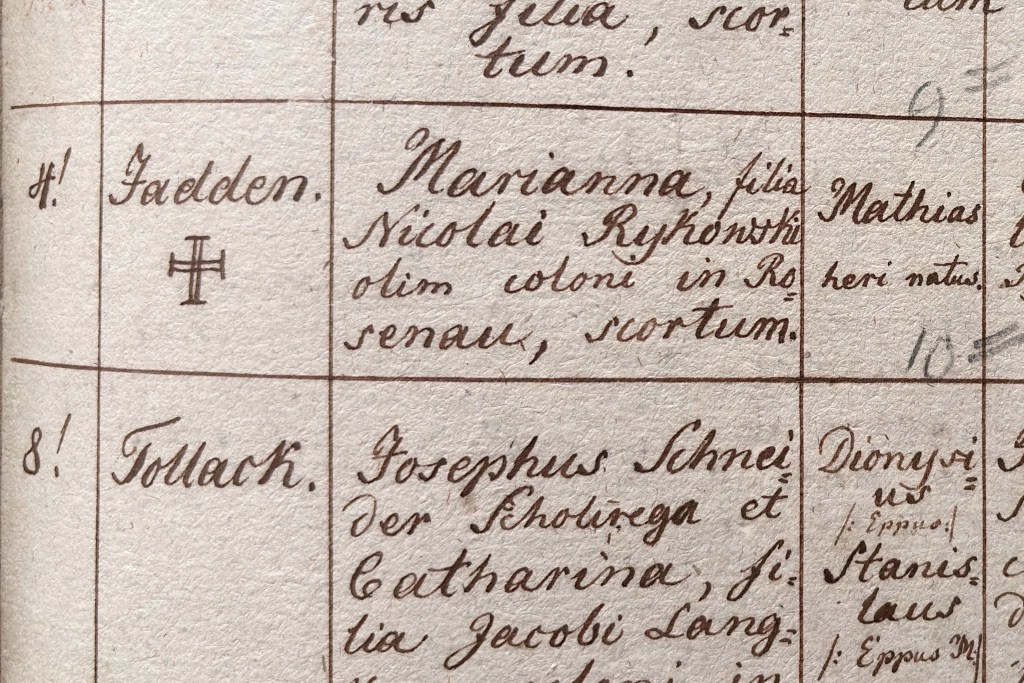 ris filia, scor=
tum.
9 =
4! Jadden. Marianna, filia
Nicolai Rykowski
olim coloni in Ro=
senau, scortum.
Mathias
heri natus.
10 =
8! Tollack. Josephus Schnei=
der Scholirega et
Catharina, fi=
lia Jacobi Lang=
coloni in
Dionysi=
us
/: Eppus :/
Stanis=
laus
/: Eppus M:/